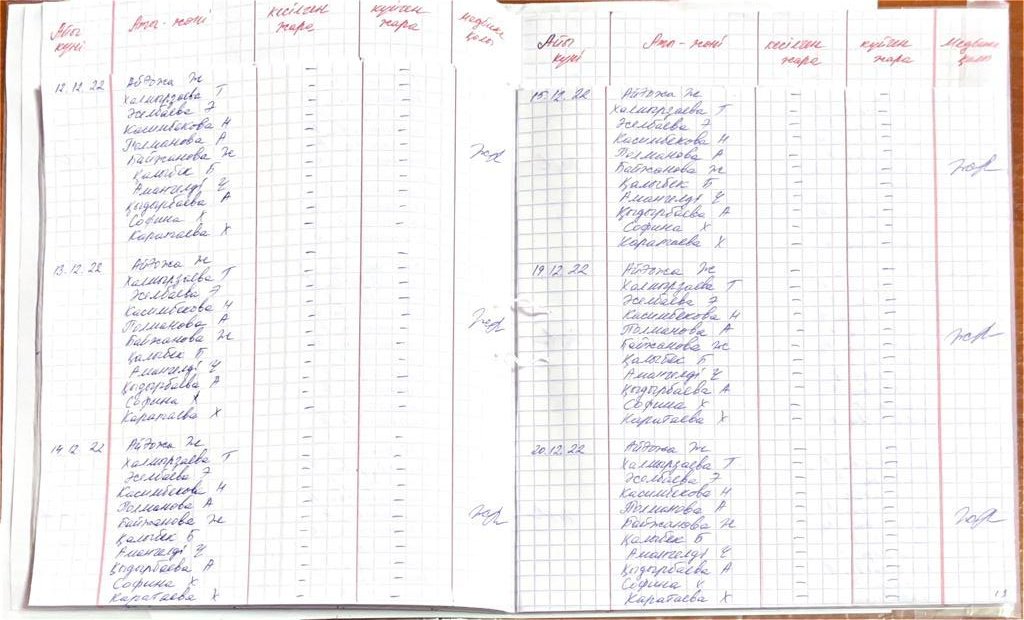 Айы күні Аты-жөні кесілген жара күйген жара Медбике қолы
12.12.22 Айдожа Ж - -
Халмырзаева Т - -
Желбаева Э - -
Касимбекова Н - -
Полманова А - -
Байжанова Ж - -
Қалыбек Б - -
Амангелді Ч - -
Қыдырбаева А - -
Софина Х - -
Каратаева Х - -
13.12.22 Айдожа Ж - -
Халмырзаева Т - -
Желбаева Э - -
Касимбекова Н - -
Полманова А - -
Байжанова Ж - -
Қалыбек Б - -
Амангелді Ч - -
Қыдырбаева А - -
Софина Х - -
Каратаева Х - -
14.12.22 Айдожа Ж - -
Халмырзаева Т - -
Желбаева Э - -
Касимбекова Н - -
Полманова А - -
Байжанова Ж - -
Қалыбек Б - -
Амангелді Ч - -
Қыдырбаева А - -
Софина Х - -
Каратаева Х - -
Айы күні Аты-жөні кесілген жара күйген жара Медбике қолы
15.12.22 Айдожа Ж - -
Халмырзаева Т - -
Желбаева Э - -
Касимбекова Н - -
Полманова А - -
Байжанова Ж - -
Қалыбек Б - -
Амангелді Ч - -
Қыдырбаева А - -
Софина Х - -
Каратаева Х - -
19.12.22 Айдожа Ж - -
Халмырзаева Т - -
Желбаева Э - -
Касимбекова Н - -
Полманова А - -
Байжанова Ж - -
Қалыбек Б - -
Амангелді Ч - -
Қыдырбаева А - -
Софина Х - -
Каратаева Х - -
20.12.22 Айдожа Ж - -
Халмырзаева Т - -
Желбаева Э - -
Касимбекова Н - -
Полманова А - -
Байжанова Ж - -
Қалыбек Б - -
Амангелді Ч - -
Қыдырбаева А - -
Софина Х - -
Каратаева Х - -